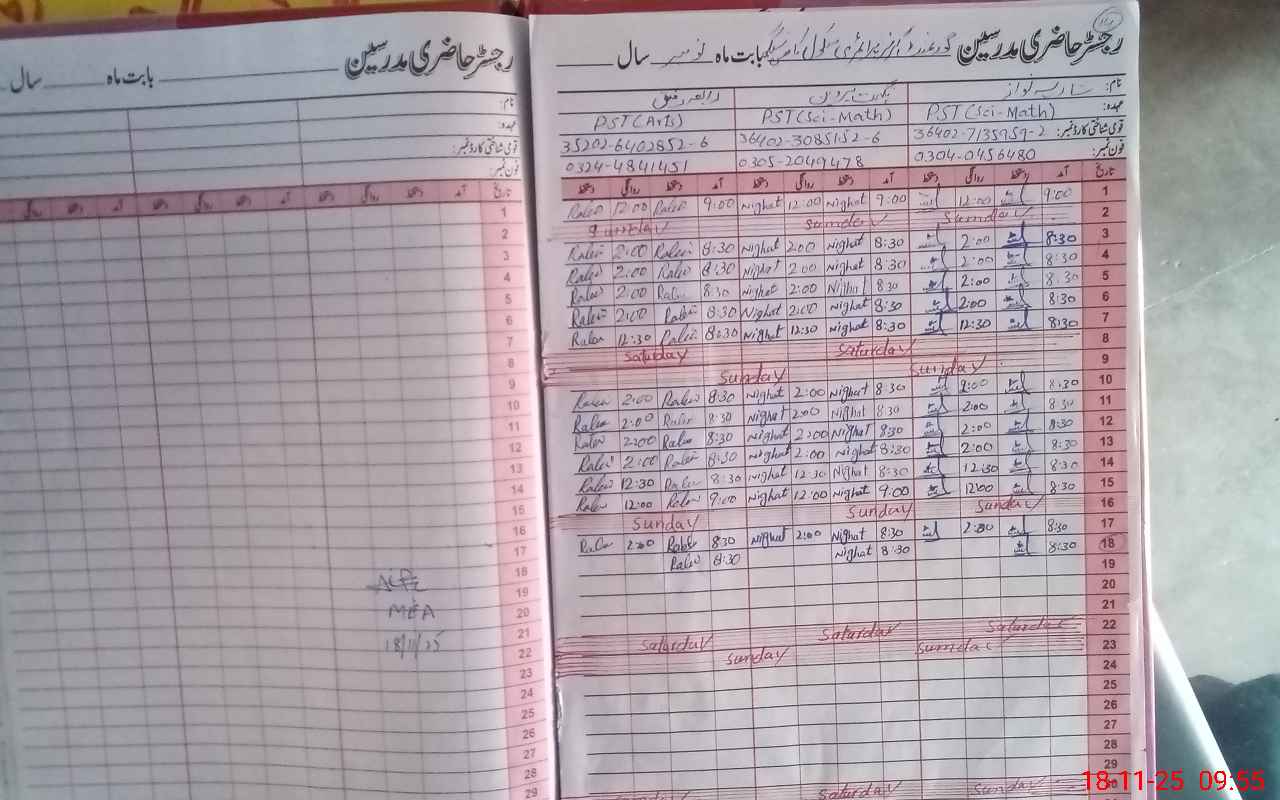 رجسٹر حاضری مدرسین
بابت ماہ
سال
نام:
عہدہ:
قومی شناختی کارڈ نمبر:
فون نمبر:
تاریخ آمد دستخط روانگی دستخط آمد دستخط روانگی
1
2
3
4
5
6
7
8
9
10
11
12
13
14
15
16
17
18
19
20
21
22
23
24
25
26
27
28
29
MEA
18/11/25
رجسٹر حاضری مدرسین گورنمنٹ گرلز پرائمری سکول بابت ماہ نومبر سال
نام: نواز
عہدہ: PST (Sci-Math) PST (Sci-Math) PST (Arts)
قومی شناختی کارڈ نمبر: 36402-7135959-2 36402-3085152-6 35202-6402852-6
فون نمبر: 0304-0456480 0305-2049478 0324-4841451
تاریخ آمد دستخط روانگی دستخط آمد دستخط روانگی دستخط آمد دستخط روانگی دستخط
1 9:00 12:00 9:00 Nighat 12:00 Nighat 9:00 12:00
2 Sunday Sunday Sunday
3 8:30 2:00 8:30 Nighat 2:00 Nighat 8:30 2:00
4 8:30 2:00 8:30 Nighat 2:00 Nighat 8:30 2:00
5 8:30 2:00 8:30 Nighat 2:00 Nighat 8:30 2:00
6 8:30 2:00 8:30 Nighat 2:00 Nighat 8:30 2:00
7 8:30 12:30 8:30 Nighat 12:30 Nighat 8:30 12:30
8 Saturday Saturday
9 Sunday Sunday
10 8:30 2:00 8:30 Nighat 2:00 Nighat 8:30 2:00
11 8:30 2:00 8:30 Nighat 2:00 Nighat 8:30 2:00
12 8:30 2:00 8:30 Nighat 2:00 Nighat 8:30 2:00
13 8:30 2:00 8:30 Nighat 2:00 Nighat 8:30 2:00
14 8:30 12:30 8:30 Nighat 12:30 Nighat 8:30 12:30
15 8:30 12:00 9:00 Nighat 12:00 Nighat 9:00 12:00
16 Sunday Sunday Sunday
17 8:30 2:00 8:30 Nighat 2:00 Nighat 8:30 2:00
18 8:30 8:30 Nighat 8:30
19
20
21
22 Saturday Saturday Saturday
23 Sunday Sunday
24
25
26
27
28
29
30 Sunday Saturday Saturday
18-11-25 09:55